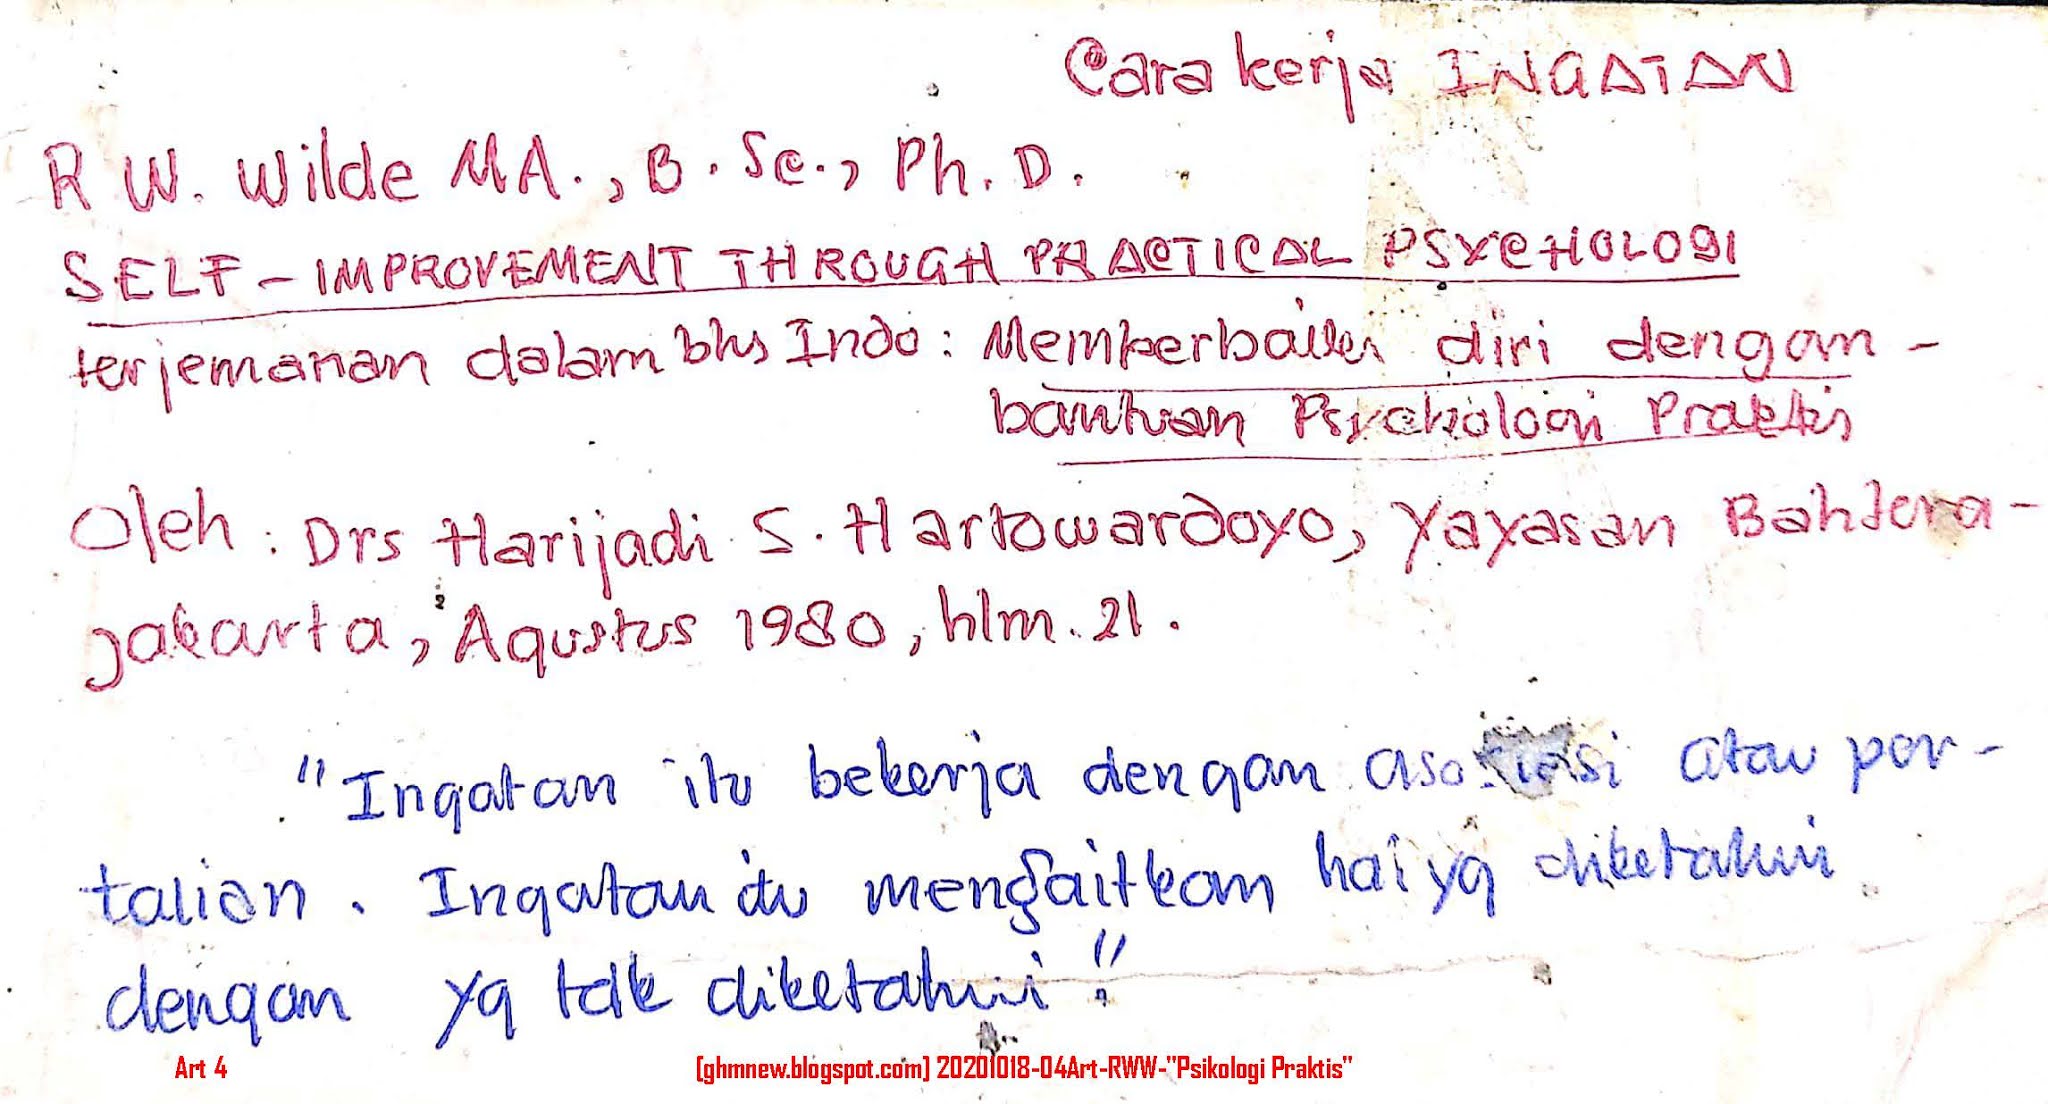 Cara kerja INGATAN
R W. Wilde MA., B. Sc., Ph. D.
SELF-IMPROVEMENT THROUGH PRACTICAL PSYCHOLOGI
terjemahan dalam bhs Indo: Memperbaiki diri dengan-
bantuan Psychologi Praktis
Oleh: Drs Harijadi S. Hartowardoyo, Yayasan Bahtera-
Jakarta, Agustus 1980, hlm. 21.
"Ingatan itu bekerja dengan asosiasi atau per-
talian. Ingatan itu mengaitkan hal yg diketahui
dengan yg tdk diketahui".
Art 4 [ghmnew.blogspot.com] 20201018-04Art-RWW-"Psikologi Praktis"